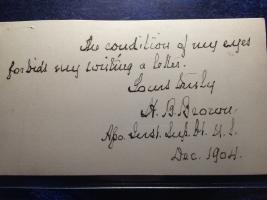 The condition of my eyes
forbids my writing a letter.
Yours truly
H. B. Brown.
Asso. Just. Sup. Ct. U. S.
Dec. 1904.